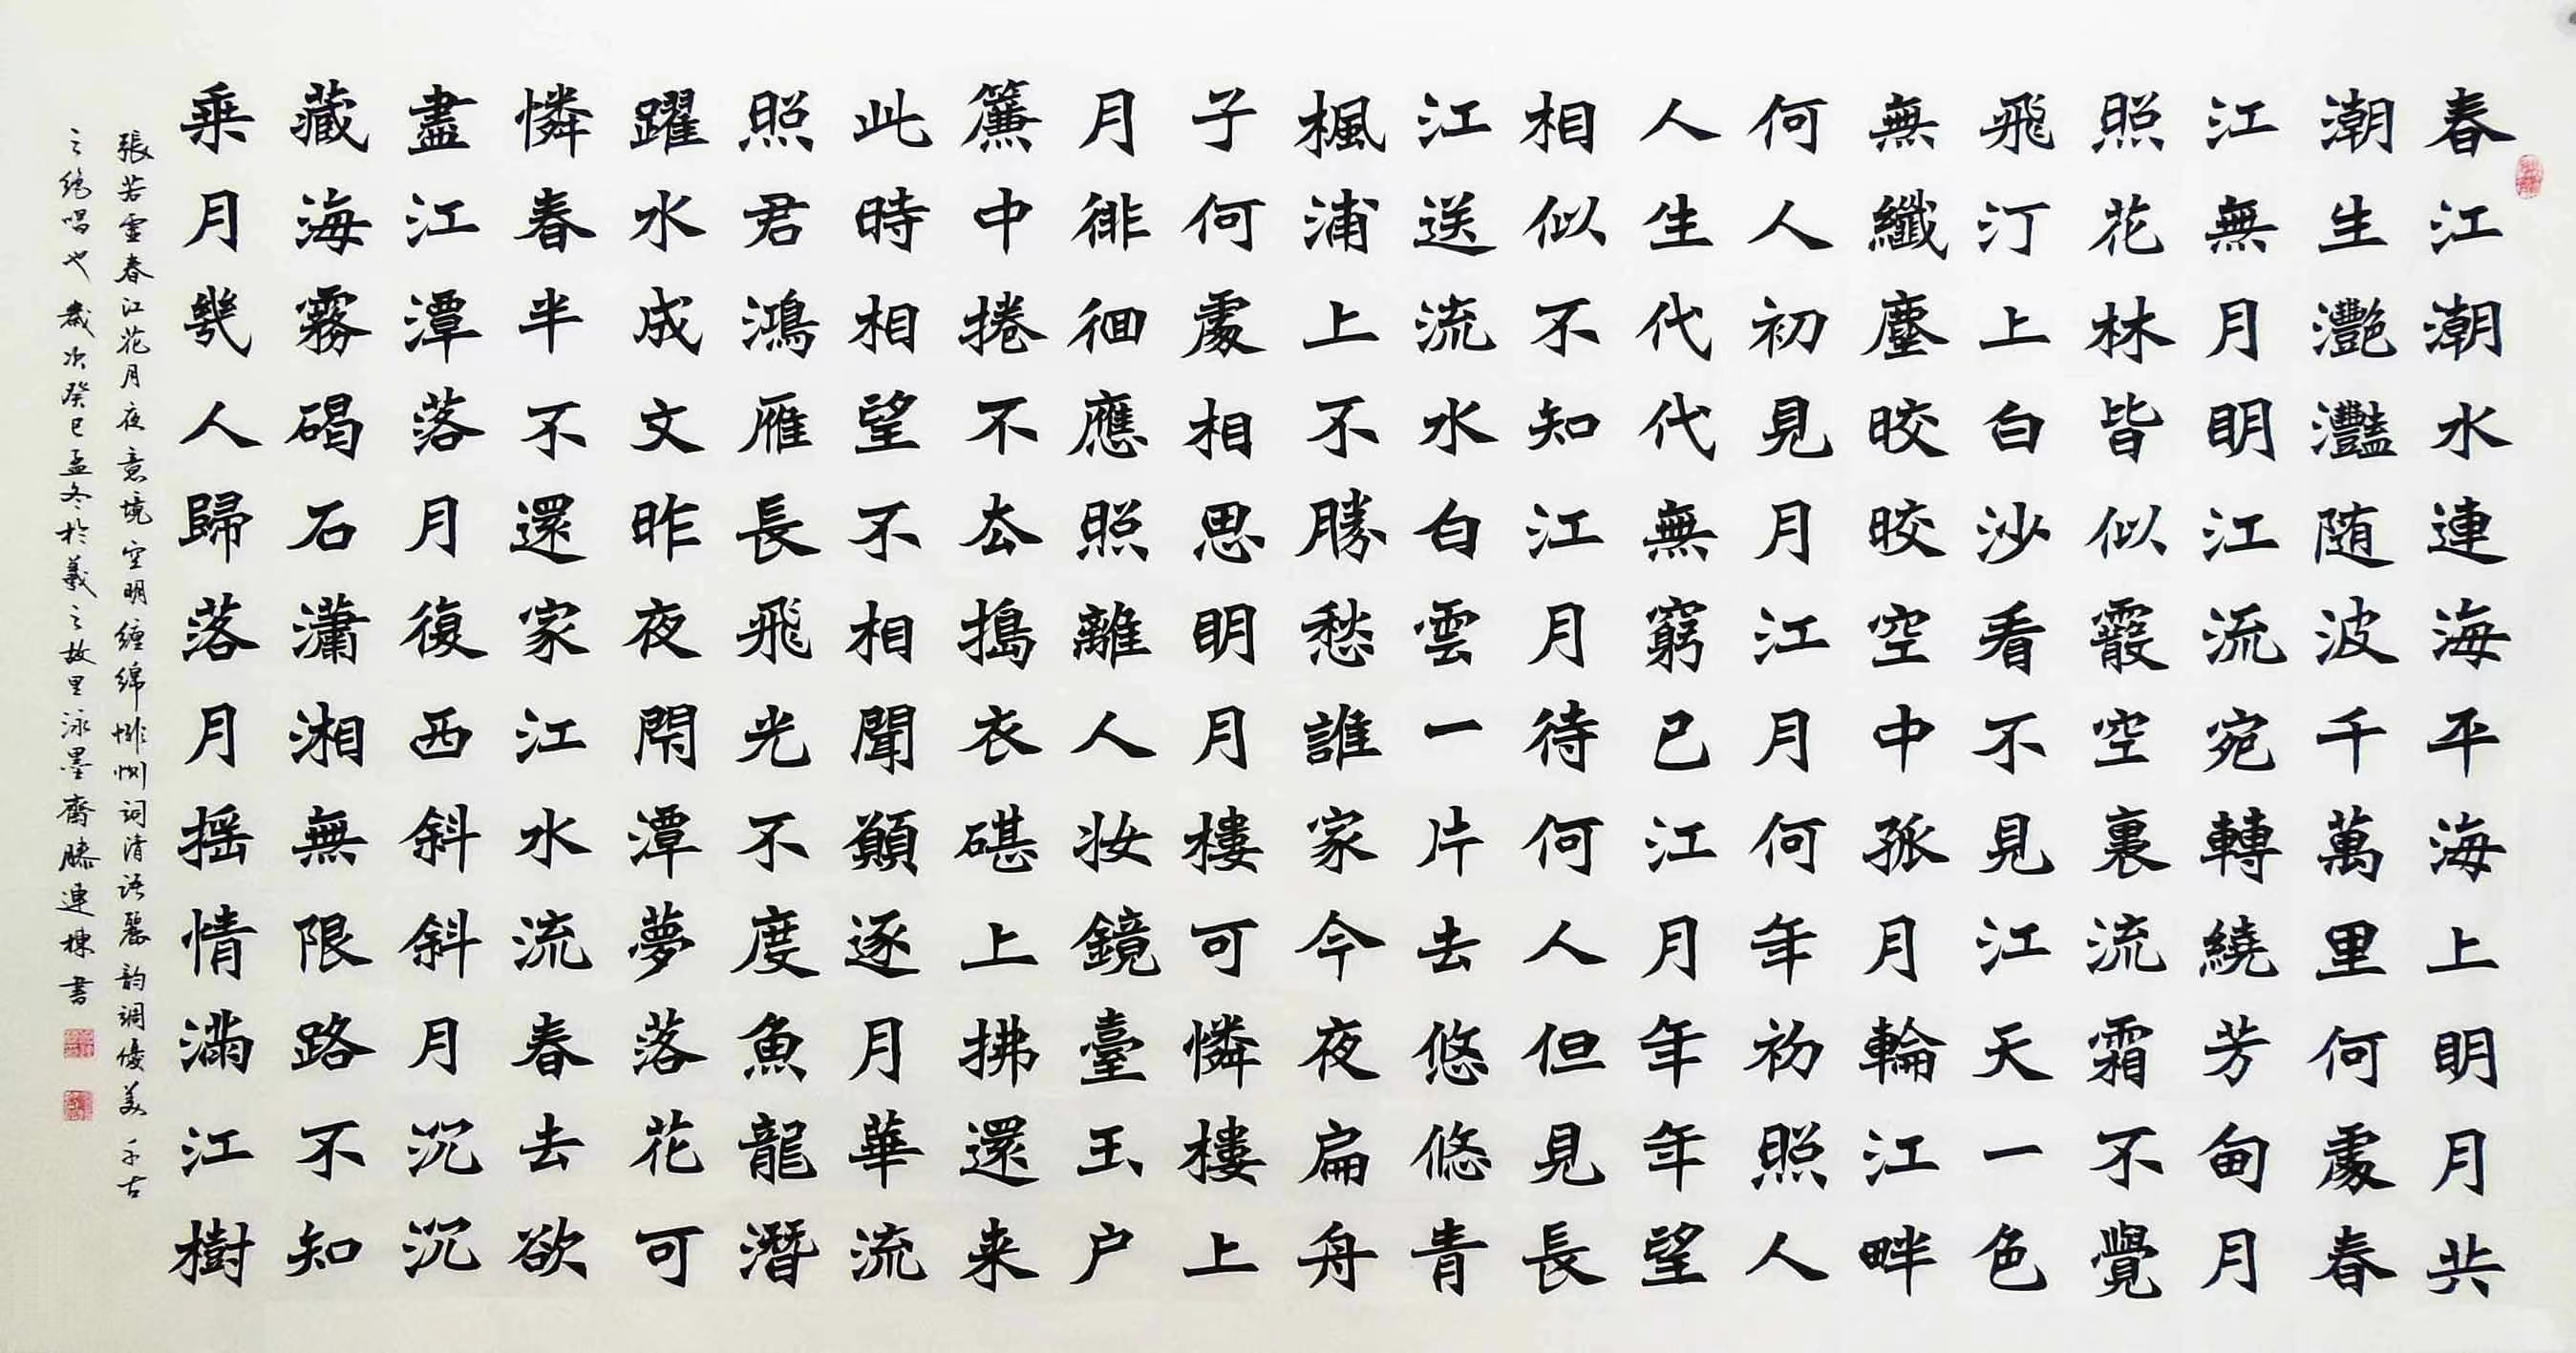 春江潮水連海平海上明月共
潮生灧灩随波千萬里何處春
江無月明江流宛轉繞芳甸月
照花林皆似霰空裏流霜不覺
飛汀上白沙看不見江天一色
無纖塵皎皎空中孤月輪江畔
何人初見月江月何年初照人
人生代代無窮已江月年年望
相似不知江月待何人但見長
江送流水白雲一片去悠悠青
楓浦上不勝愁誰家今夜扁舟
子何處相思明月樓可憐樓上
月徘徊應照離人妆鏡臺玉户
簾中捲不去搗衣碪上拂還来
此時相望不相聞願逐月華流
照君鴻雁長飛光不度魚龍潛
躍水成文昨夜閑潭夢落花可
憐春半不還家江水流春去欲
盡江潭落月復西斜斜月沉沉
藏海霧碣石瀟湘無限路不知
乘月幾人歸落月摇情滿江樹
張若虛春江花月夜意境空明缠綿悱恻词清语麗韵調優美千古
之絶唱也歲次癸巳孟冬於羲之故里泳墨齋滕連棟書